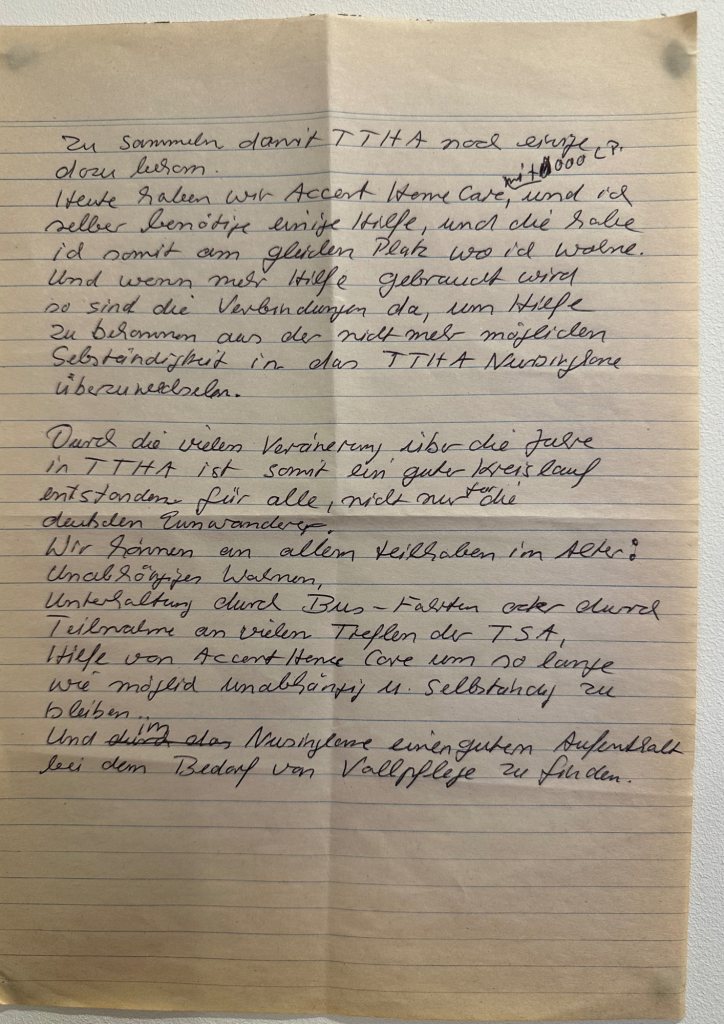 zu sammeln damit TTHA noch einige
dazu bekam.
mit 1000 C.P.
Heute haben wir Accent Home Care, und ich
selber benötige einige Hilfe, und die habe
ich somit am gleichen Platz wo ich wohne.
Und wenn mehr Hilfe gebraucht wird
so sind die Verbindungen da, um Hilfe
zu bekommen aus der nicht mehr möglichen
Sebständigkeit in das TTHA Nursinghome
überzuwechseln.
Durch die vielen Veränerung über die Jahre
in TTHA ist somit ein guter Kreislauf
entstanden für alle, nicht nur für die
deutschen Einwanderer.
Wir können an allem teilhaben im Alter:
Unabhängiges Wohnen,
Unterhaltung durch Bus-Fahrten oder durch
Teilnahme an vielen Treffen der TSA,
Hilfe von Accent Home Care um so lange
wie möglich unabhängig u. selbständig zu
bleiben.
Und im Nursinghome einen gutem Aufenthalt
bei dem Bedarf von Vollpflege zu finden.